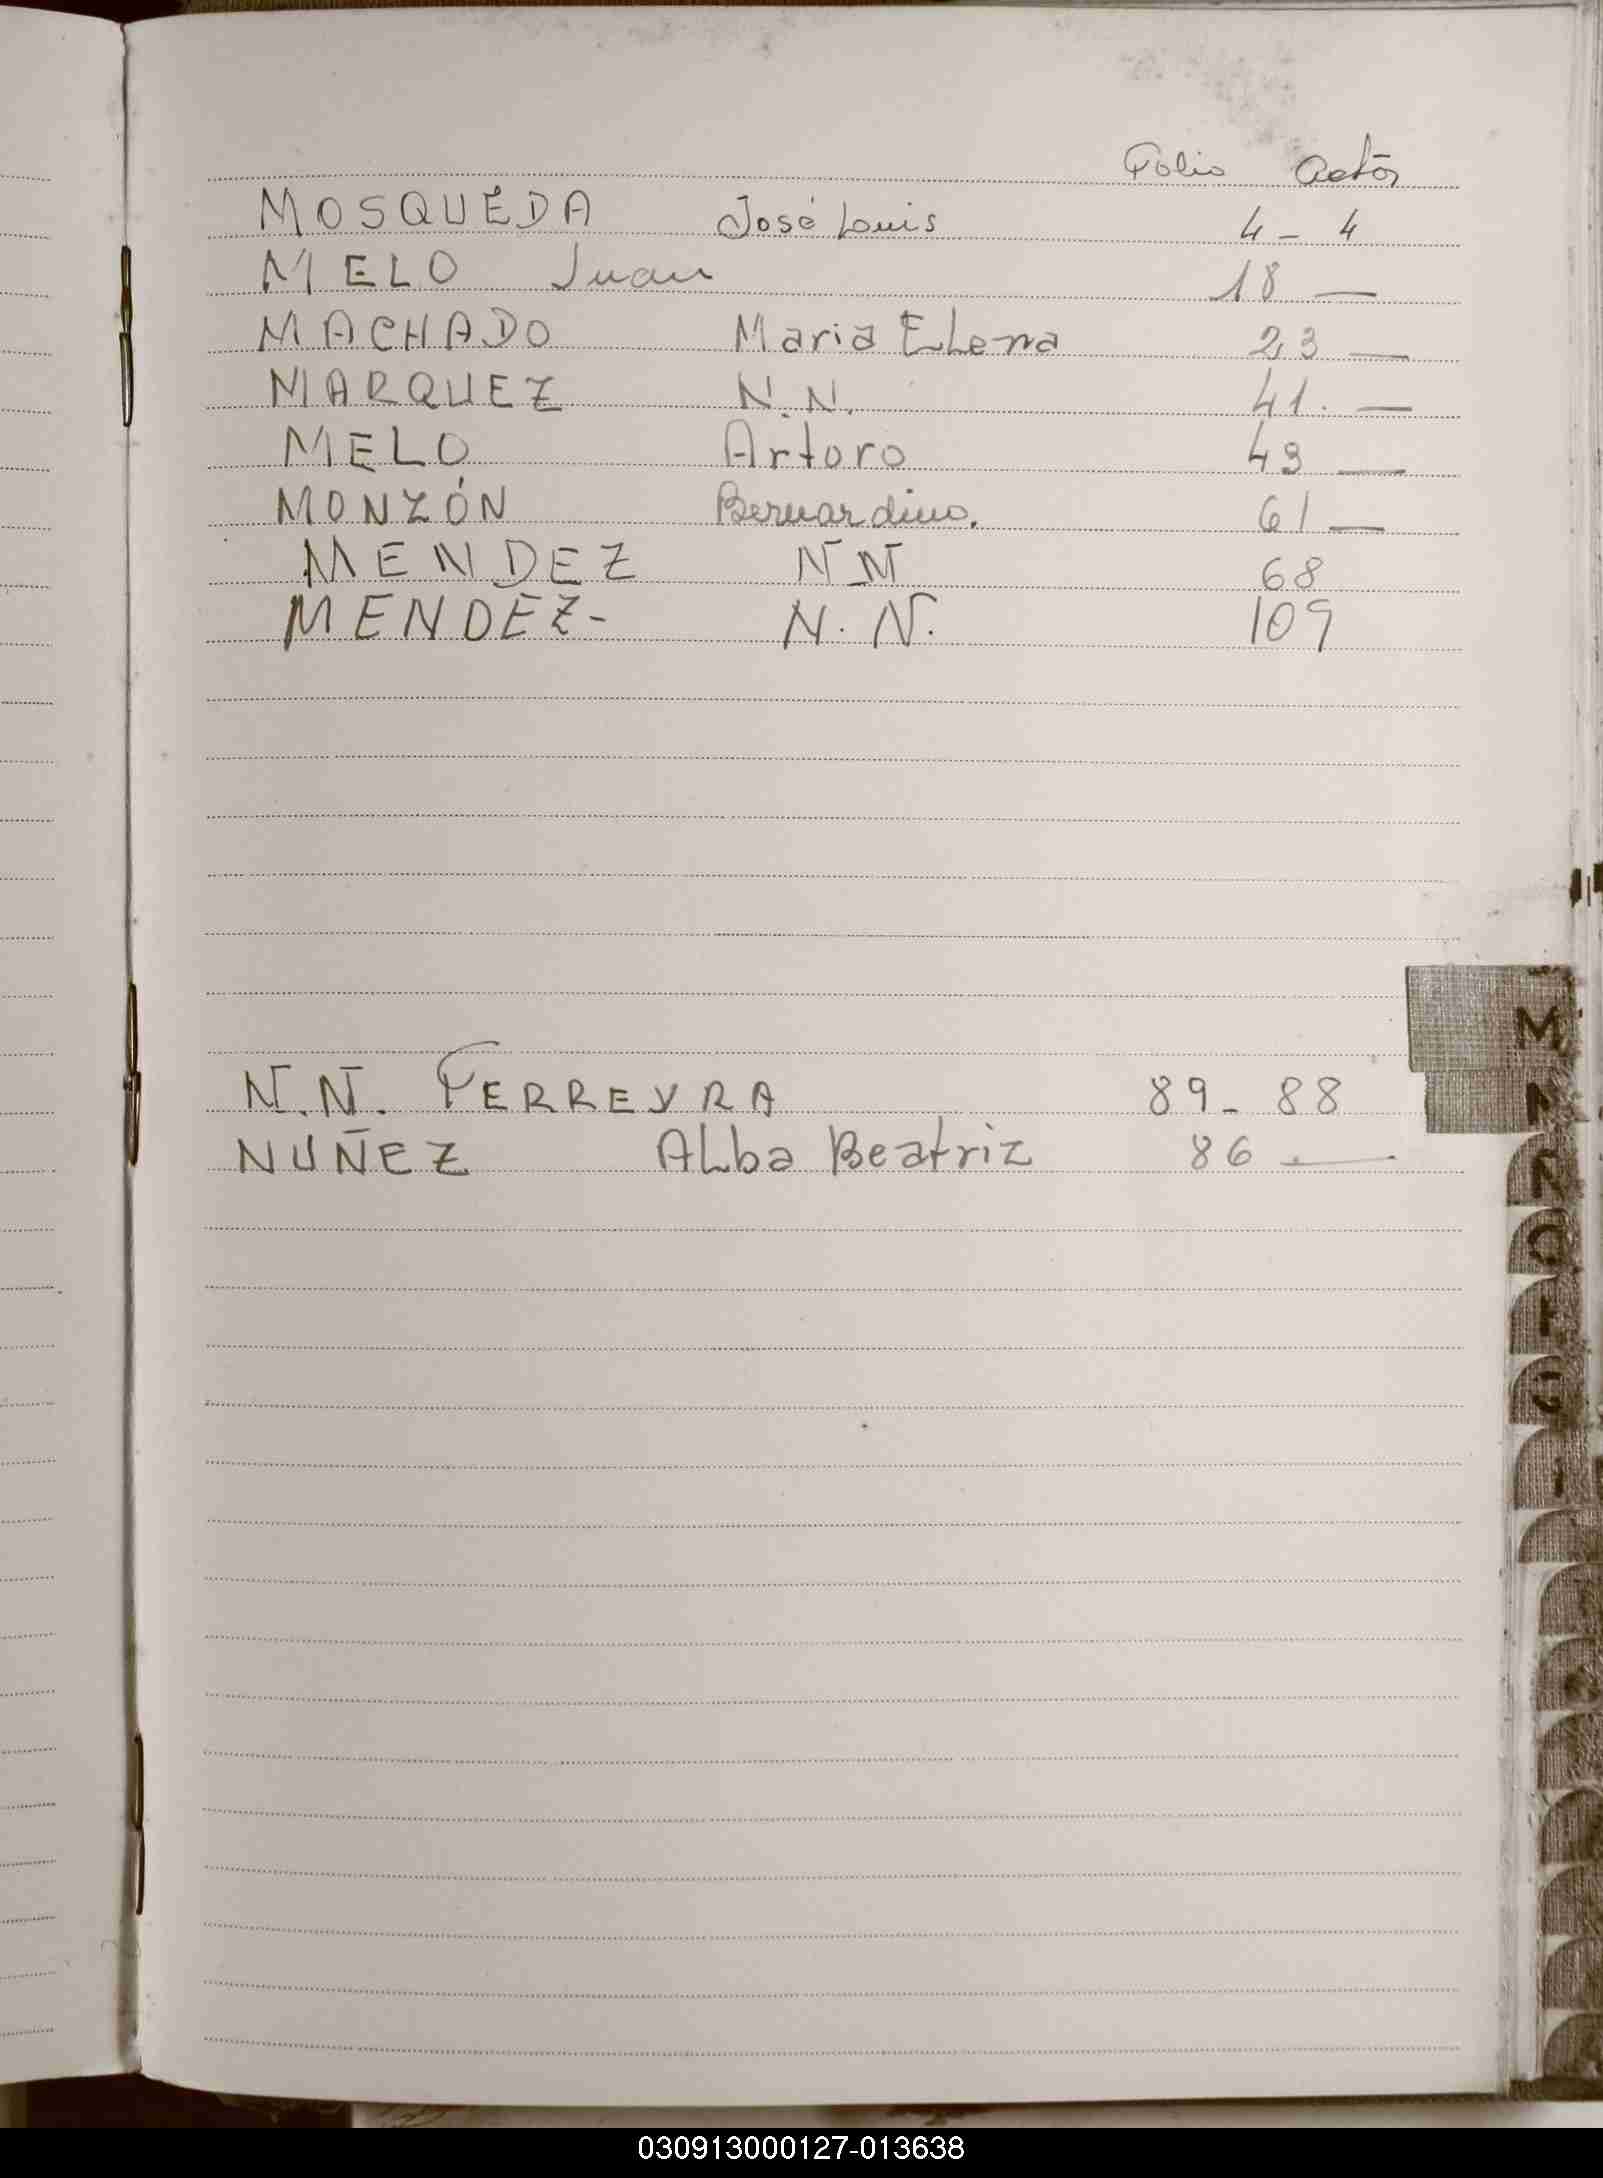 Folio Actas
MOSQUEDA José Louis 4 - 4
MELO Juan 18 —
MACHADO Maria ELena 23 —
MARQUEZ N.N. 41. —
MELO Artoro 43 —
MONZÓN Bernardino. 61 —
MENDEZ N N 68
MENDEZ- N. N. 109
M
N.N. FERREYRA 89 - 88
N
NUÑEZ ALba Beatriz 86 —
030913000127-013638